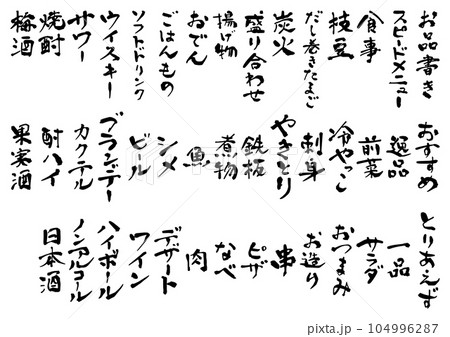 お品書き
スピードメニュー
食事
枝豆
だし巻きたまご
炭火
盛り合わせ
揚げ物
おでん
ごはんもの
ソフトドリンク
ウイスキー
サワー
焼酎
梅酒
おすすめ
逸品
前菜
冷やっこ
刺身
やきとり
鉄板
煮物
魚
シメ
ビール
ブランデー
カクテル
酎ハイ
果実酒
とりあえず
一品
サラダ
おつまみ
お造り
串
ピザ
なべ
肉
デザート
ワイン
ハイボール
ノンアルコール
日本酒
pixta.jp - 104996287